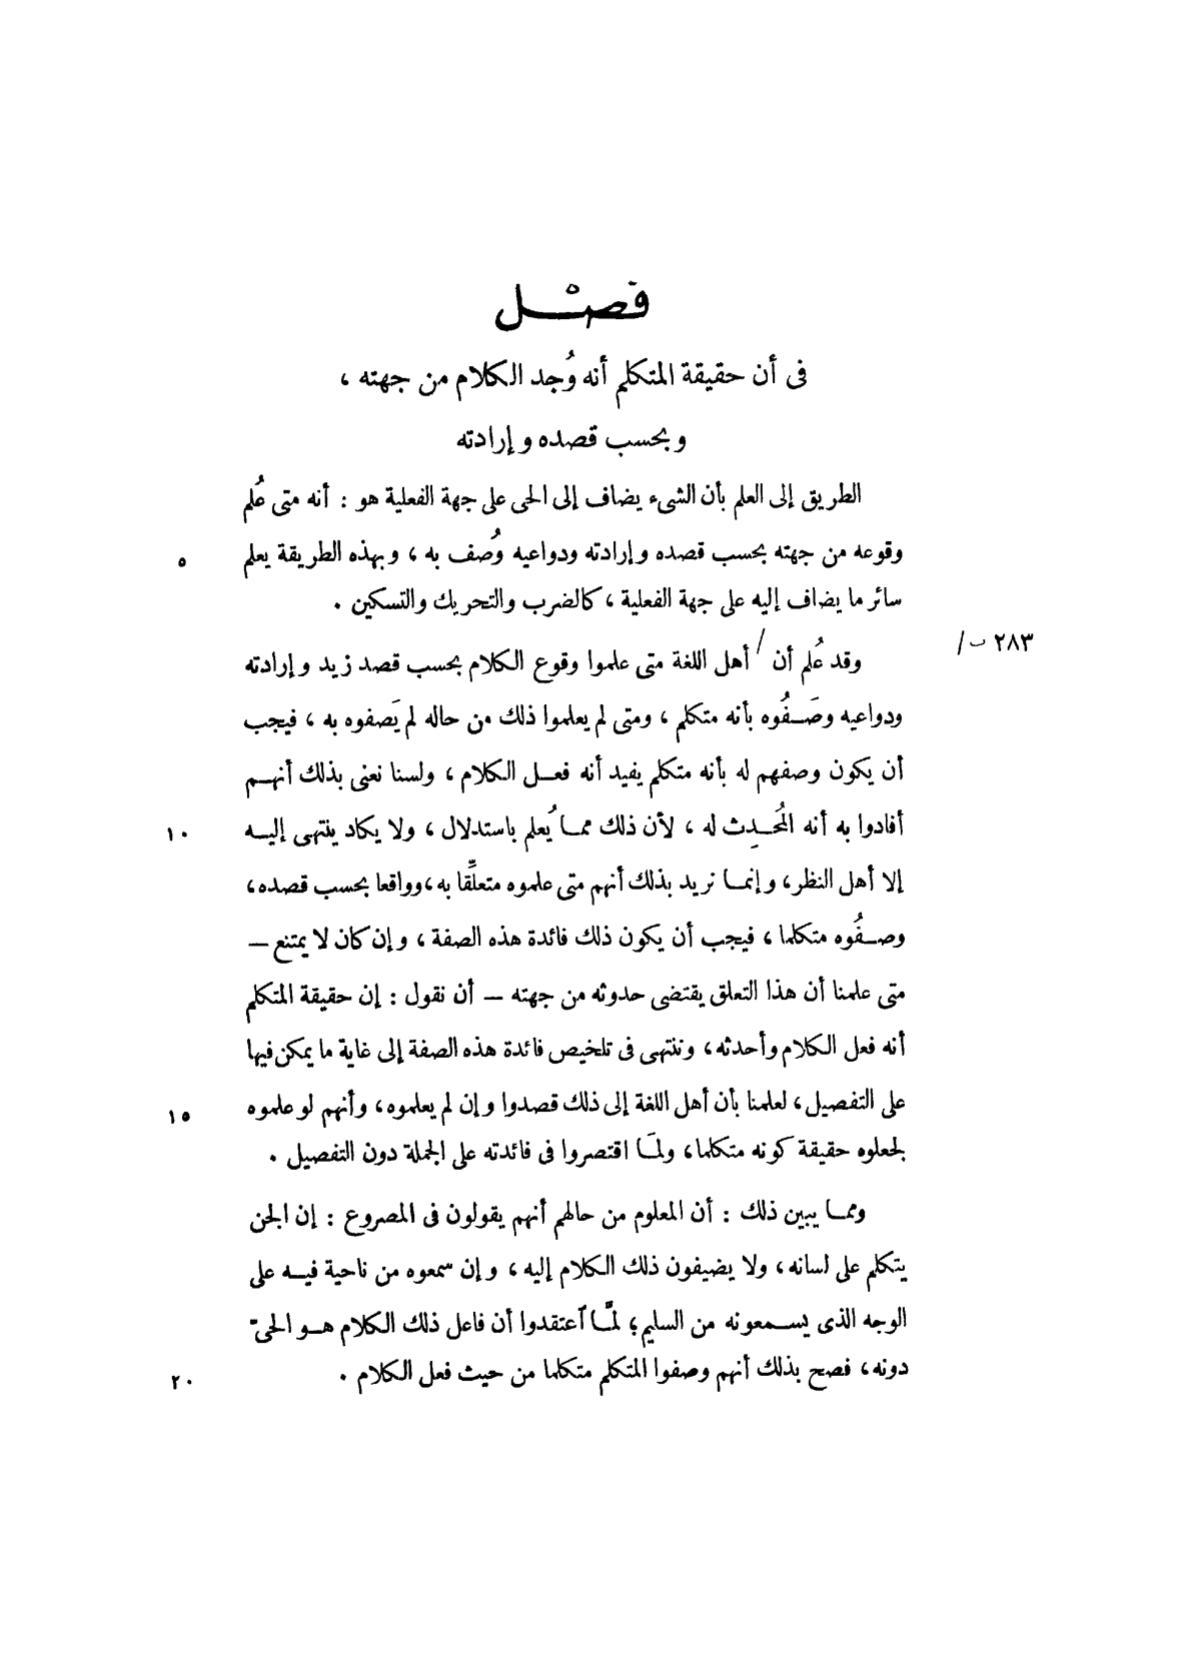 فصْل
فى أن حقيقة المتكلم أنه وُجد الكلام من جهته ،
وبحسب قصده وإرادته
الطريق إلى العلم بأن الشىء يضاف إلى الحى على جهة الفعلية هو : أنه متى عُلم
وقوعه من جهته بحسب قصده وإرادته ودواعيه وُصف به ، وبهذه الطريقة يعلم ٥
سائر ما يضاف إليه على جهة الفعلية ، كالضرب والتحريك والتسكين .
وقد عُلم أن / أهل اللغة متى علموا وقوع الكلام بحسب قصد زيد وإرادته ٢٨٣ ب /
ودواعيه وصَفُوه بأنه متكلم ، ومتى لم يعلموا ذلك من حاله لم يَصفوه به ، فيجب
أن يكون وصفهم له بأنه متكلم يفيد أنه فعل الكلام ، ولسنا نعنى بذلك أنهم
أفادوا به أنه المُحدِث له ، لأن ذلك مما يُعلم باستدلال ، ولا يكاد ينتهى إليه ١٠
إلا أهل النظر، وإنما نريد بذلك أنهم متى علموه متعلِّقا به ، وواقعا بحسب قصده،
وصفُوه متكلما ، فيجب أن يكون ذلك فائدة هذه الصفة ، وإن كان لا يمتنع —
متى علمنا أن هذا التعلق يقتضى حدوثه من جهته — أن نقول : إن حقيقة المتكلم
أنه فعل الكلام وأحدثه ، وننتهى فى تلخيص فائدة هذه الصفة إلى غاية ما يمكن فيها
على التفصيل ، لعلمنا بأن أهل اللغة إلى ذلك قصدوا وإن لم يعلموه ، وأنهم لو علموه ١٥
لجعلوه حقيقة كونه متكلما ، ولمَا اقتصروا فى فائدته على الجملة دون التفصيل .
ومما يبين ذلك : أن المعلوم من حالهم أنهم يقولون فى المصروع : إن الجن
يتكلم على لسانه ، ولا يضيفون ذلك الكلام إليه ، وإن سمعوه من ناحية فيه على
الوجه الذى يسمعونه من السليم ؛ لمَّا ٱعتقدوا أن فاعل ذلك الكلام هو الحىّ
دونه ، فصح بذلك أنهم وصفوا المتكلم متكلما من حيث فعل الكلام . ٢٠